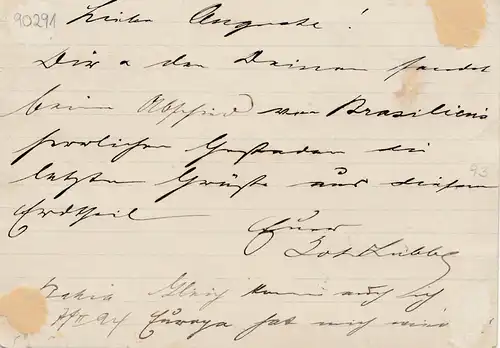 90291
Liebe Auguste!
Dir u den Deinen sendet
beim Abschied von Brasiliens
herrlichen Gestaden die
letzten Grüße aus diesem
Erdtheil
93
Euer
Joh Lübbe
Bahia Gleich kann auch ich
Europa hat mich wied